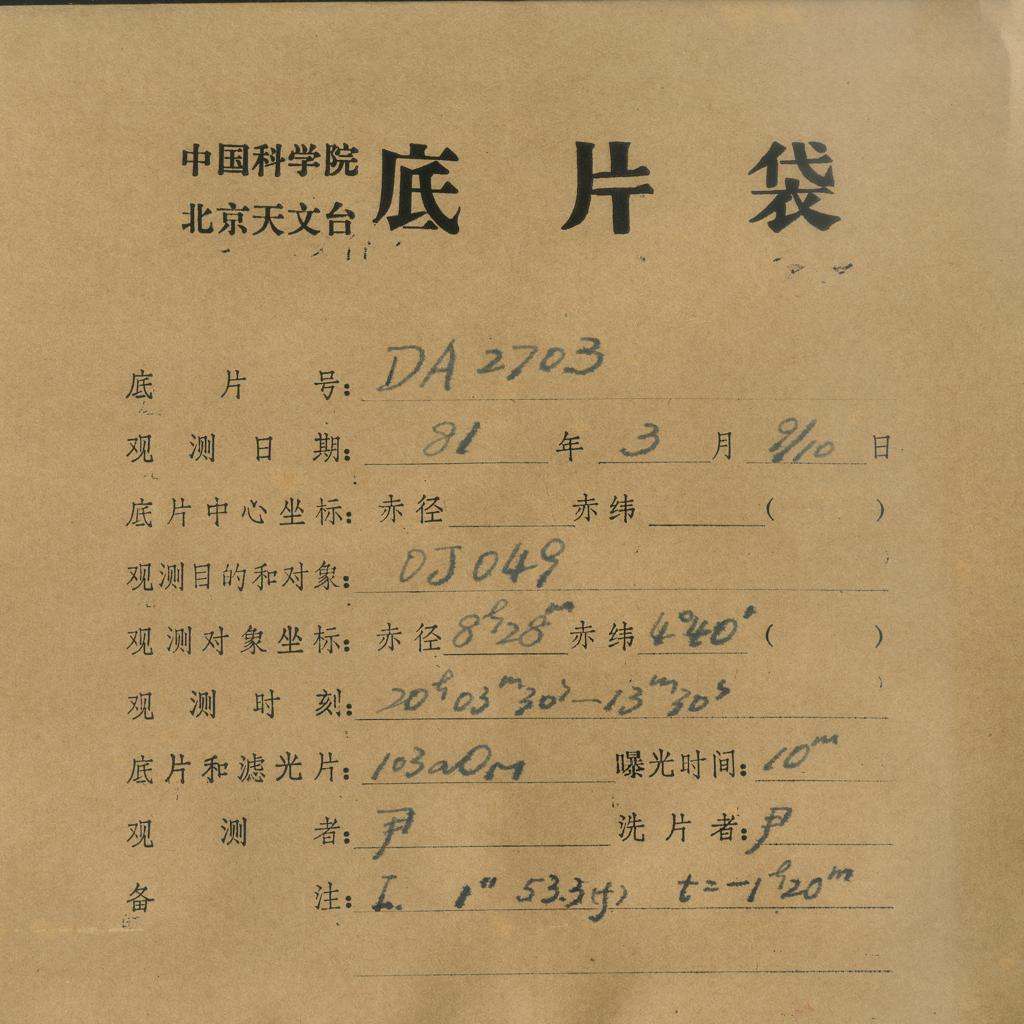 中国科学院
北京天文台 底片袋
底片号: DA 2703
观测日期: 81 年 3 月 9/10 日
底片中心坐标: 赤径 赤纬 ( )
观测目的和对象: OJ 049
观测对象坐标: 赤径 8ʰ28ᵐ 赤纬 4°40′ ( )
观测时刻: 20ʰ03ᵐ30ˢ—13ᵐ30ˢ
底片和滤光片: 103aO 曝光时间: 10ᵐ
观测者: 尹 洗片者: 尹
备注: I. 1″ 53.3 t=-1ʰ20ᵐ